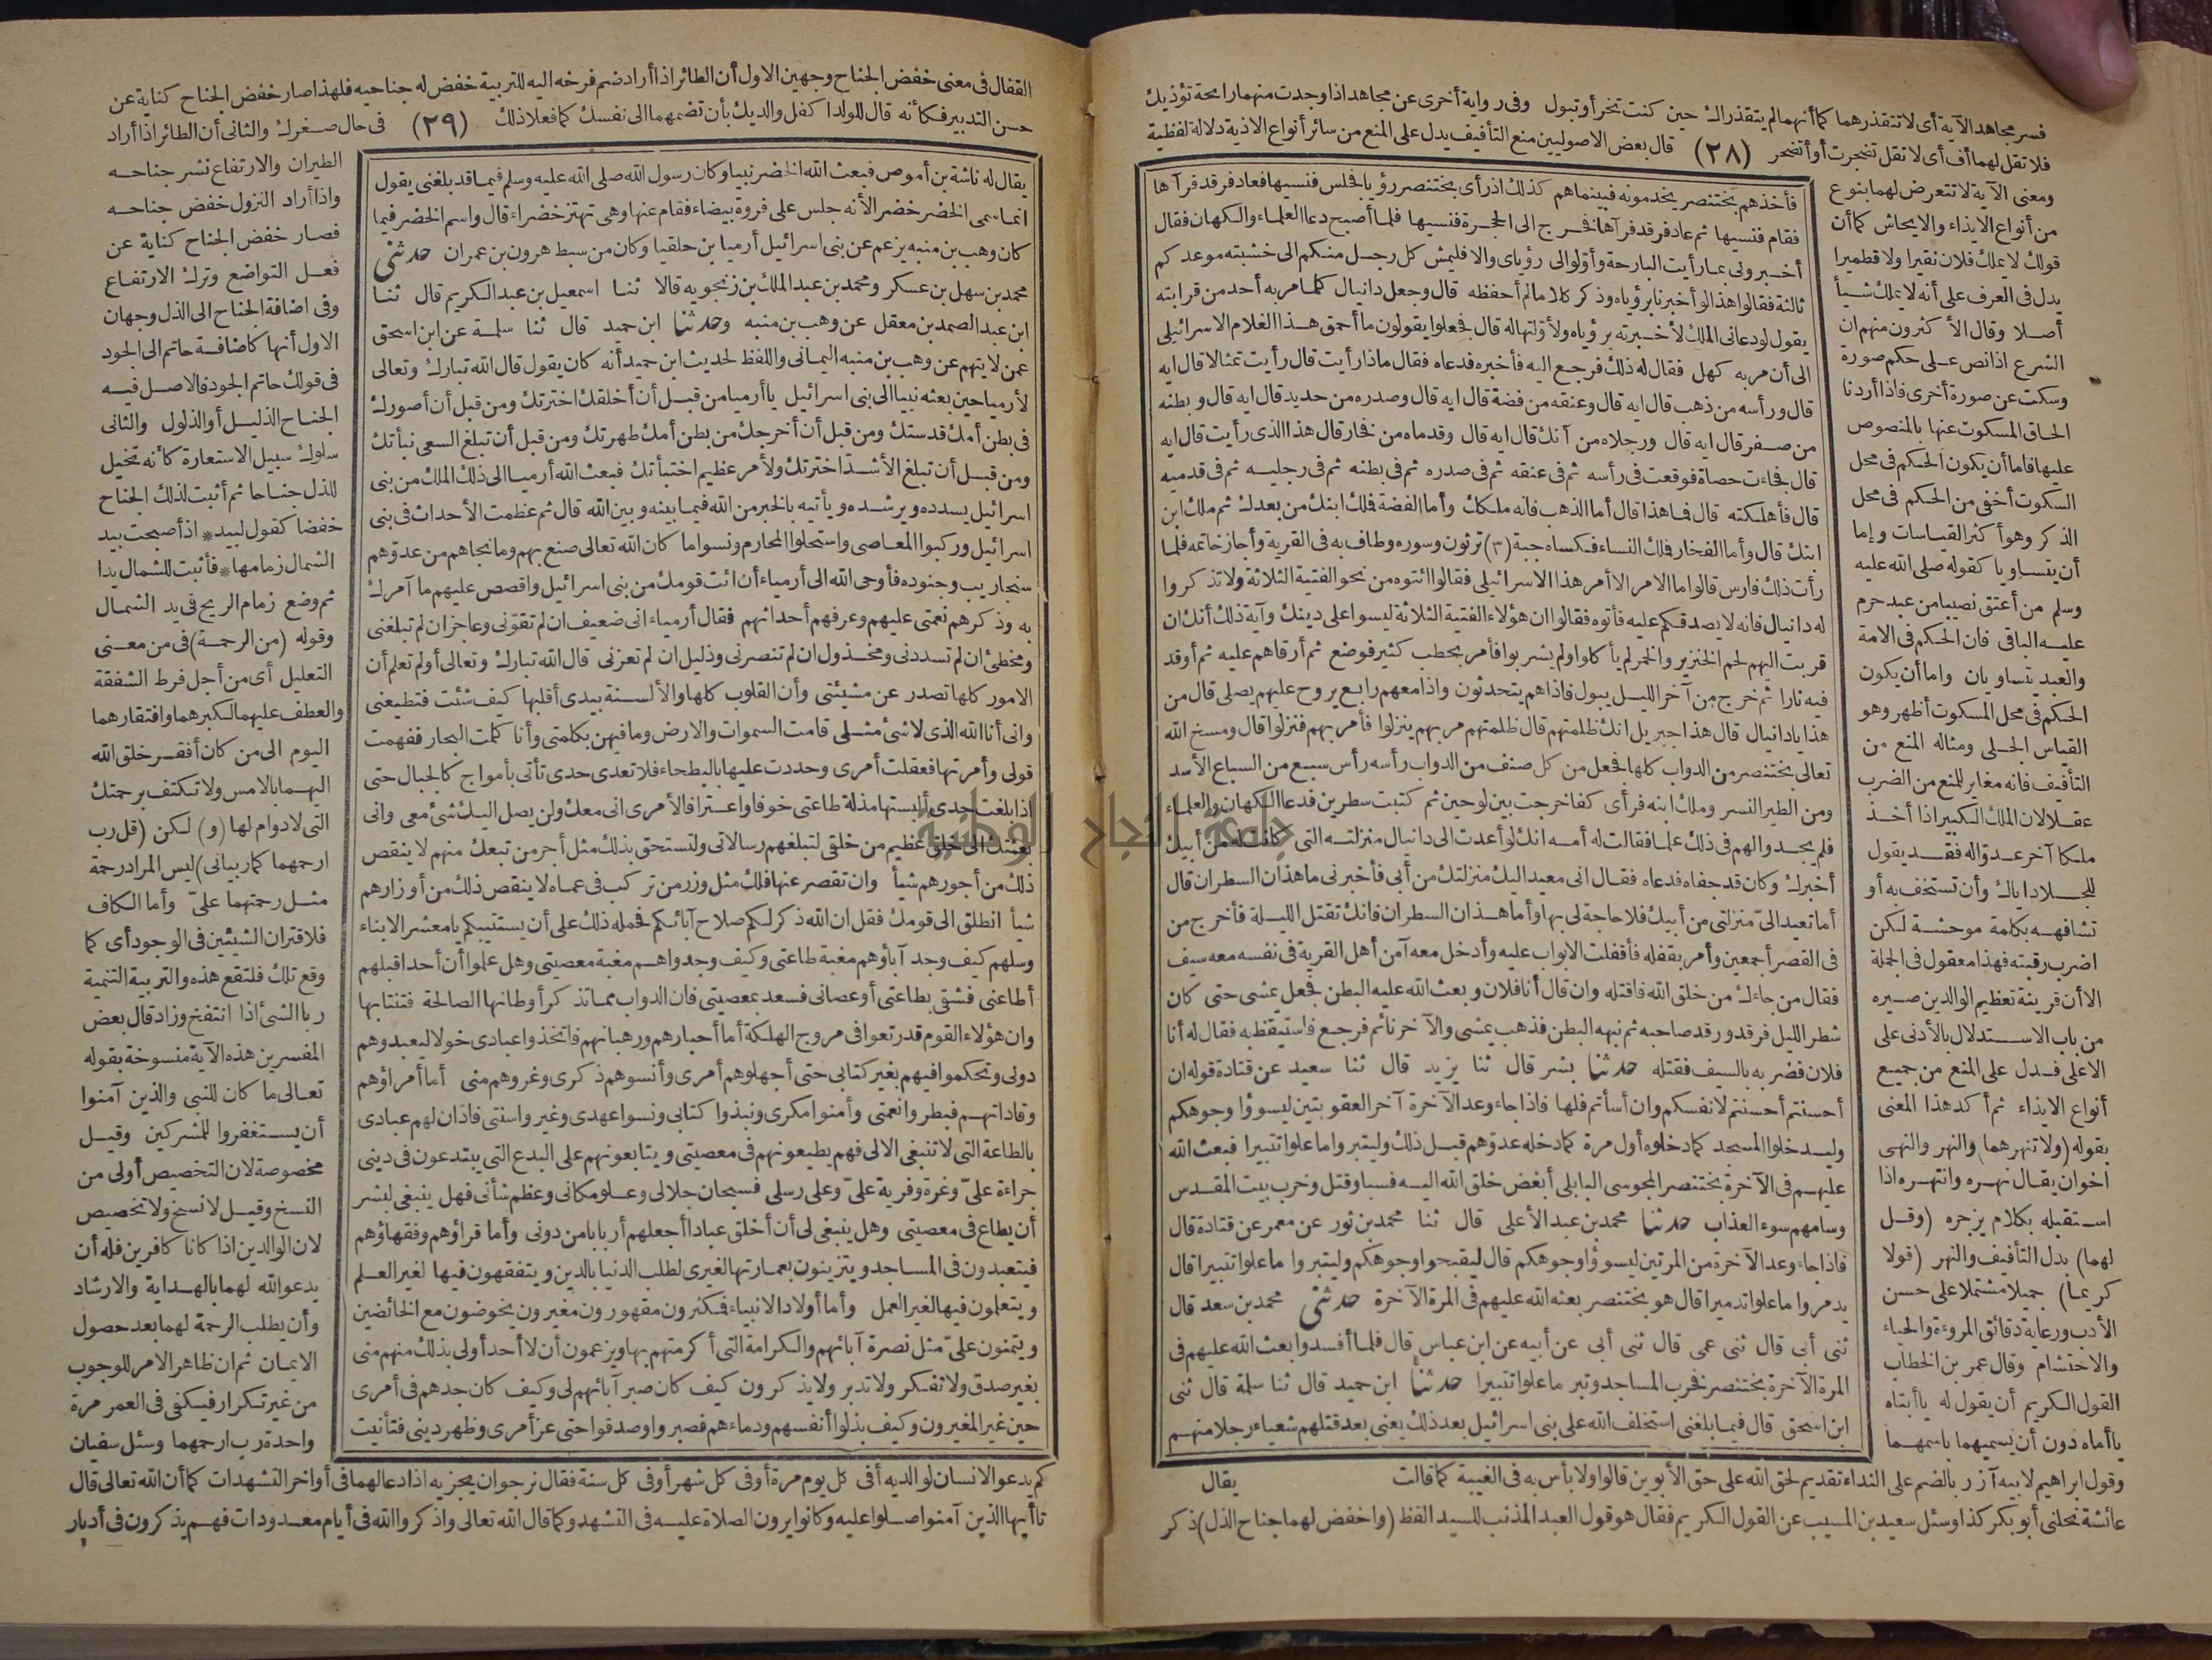 فسر مجاهد الآية أى لا تتقذرهما كما أنهما لم يتقذراك حين كنت تخرأ وتبول وفى رواية أخرى عن مجاهد اذا وجدت منهما رائحة تؤذيك
فلا تقل لهما أف أى لا تقل تضجرت أو أتضجر (٢٨) قال بعض الاصوليين منع التأفيف يدل على المنع من سائر أنواع الاذية دلالة لفظية
ومعنى الآية لا تتعرض لهما بنوع
من أنواع الايذاء والايحاش كما أن
قولك لا يملك فلان نقيرا ولا قطميرا
يدل فى العرف على أنه لا يملك شيأ
أصلا وقال الأكثرون منهم ان
الشرع اذا نص على حكم صورة
وسكت عن صورة أخرى فاذا أردنا
الحاق المسكوت عنها بالمنصوص
عليها فاما أن يكون الحكم فى محل
السكوت أخفى من الحكم فى محل
الذكر وهو أكثر القياسات وإما
أن يتساويا كقوله صلى الله عليه
وسلم من أعتق نصيبا من عبد حرم
عليه الباقى فان الحكم فى الامة
والعبد يتساويان واما أن يكون
الحكم فى محل المسكوت أظهر وهو
القياس الجلى ومثاله المنع من
التأفيف فانه مغاير للمنع من الضرب
عقلا لان الملك الكبير اذا أخذ
ملكا آخر عدوا له فقد يقول
للجلاد اياك وأن تستخف به أو
تشافهه بكلمة موحشة لكن
اضرب رقبته فهذا معقول فى الجملة
الا أن قرينة تعظيم الوالدين صيره
من باب الاستدلال بالأدنى على
الاعلى فدل على المنع من جميع
أنواع الايذاء ثم أكد هذا المعنى
بقوله (ولا تنهرهما) والنهر والنهى
اخوان يقال نهره وانتهره اذا
استقبله بكلام يزجره (وقل
لهما) بدل التأفيف والنهر (قولا
كريما) جميلا مشتملا على حسن
الأدب ورعاية دقائق المروءة والحياء
والاحتشام وقال عمر بن الخطاب
القول الكريم أن يقول له يا أبتاه
يا أماه دون أن يسميهما باسمهما
فأخذهم بختنصر يخدمونه فبينماهم كذلك اذ رأى بختنصر رؤيا فجلس فنسيها فعاد فرقد فرآها
فقام فنسيها ثم عاد فرقد فرآها فخرج الى الحجرة فنسيها فلما أصبح دعا العلماء والكهان فقال
أخبرونى بما رأيت البارحة وأولوا لى رؤياى والا فليمش كل رجل منكم الى خشبته موعدكم
ثالثة فقالوا هذا لو أخبرنا برؤياه وذكر كلاما لم أحفظه قال وجعل دانيال كلما مر به أحد من قرابته
يقول لو دعانى الملك لأخبرته برؤياه ولأولتها له قال فجعلوا يقولون ما أحمق هذا الغلام الاسرائيلى
الى أن مر به كهل فقال له ذلك فرجع اليه فأخبره فدعاه فقال ماذا رأيت قال رأيت تمثالا قال ايه
قال ورأسه من ذهب قال ايه قال وعنقه من فضة قال ايه قال وصدره من حديد قال ايه قال وبطنه
من صفر قال ايه قال ورجلاه من آنك قال ايه قال وقدماه من فخار قال هذا الذى رأيت قال ايه
قال فجاءت حصاة فوقعت فى رأسه ثم فى عنقه ثم فى صدره ثم فى بطنه ثم فى رجليه ثم فى قدميه
قال فأهلكته قال فما هذا قال أما الذهب فانه ملكك وأما الفضة فلك ابنك من بعدك ثم ملك ابن
ابنك قال وأما الفخار فلك النساء فكساه جبة (٣) ترثون وسوره وطاف به فى القرية وأجاز خاتمه فلما
رأت ذلك فارس قالوا ما الامر الا أمر هذا الاسرائيلى فقالوا ائتوه من نحو الفتية الثلاثة ولا تذكروا
له دانيال فانه لا يصدقكم عليه فأتوه فقالوا ان هؤلاء الفتية الثلاثة ليسوا على دينك وآية ذلك أنك ان
قربت اليهم لحم الخنزير والخمر لم يأكلوا ولم يشربوا فأمر بحطب كثير فوضع ثم أرقاهم عليه ثم أوقد
فيه نارا ثم خرج من آخر الليل يبول فاذاهم يتحدثون واذا معهم رابع يروح عليهم يصلى قال من
هذا يا دانيال قال هذا جبريل انك ظلمتهم قال ظلمتهم مر بهم ينزلوا فأمر بهم فنزلوا قال ومسخ الله
تعالى بختنصر من الدواب كلها فجعل من كل صنف من الدواب رأسه رأس سبع من السباع الأسد
ومن الطير النسر وملك ابنه فرأى كفا خرجت بين لوحين ثم كتبت سطرين فدعا الكهان والعلماء
فلم يجد والهم فى ذلك علما فقالت له أمه انك لو أعدت الى دانيال منزلته التى كانت له من أبيك
أخبرك وكان قد جفاه فدعاه فقال انى معيد اليك منزلتك من أبى فأخبرنى ما هذان السطران قال
أما تعيد الىّ منزلتى من أبيك فلا حاجة لى بها وأما هذان السطران فانك تقتل الليلة فأخرج من
فى القصر أجمعين وأمر بقفله فأقفلت الابواب عليه وأدخل معه آمن أهل القرية فى نفسه معه سيف
فقال من جاءك من خلق الله فاقتله وان قال أنا فلان وبعث الله عليه البطن فجعل يمشى حتى كان
شطر الليل فرقد ورقد صاحبه ثم نبهه البطن فذهب يمشى والآخر نائم فرجع فاستيقظ به فقال له أنا
فلان فضربه بالسيف فقتله حدثنا بشر قال ثنا يزيد قال ثنا سعيد عن قتادة قوله ان
أحسنتم أحسنتم لانفسكم وان أسأتم فلها فاذا جاء وعد الآخرة آخر العقوبتين ليسوؤا وجوهكم
وليدخلوا المسجد كما دخلوه أول مرة كما دخله عدوهم قبل ذلك وليتبروا ما علوا تتبيرا فبعث الله
عليهم فى الآخرة بختنصر المجوسى البابلى أبغض خلق الله اليه فسبا وقتل وخرب بيت المقدس
وسامهم سوء العذاب حدثنا محمد بن عبد الأعلى قال ثنا محمد بن ثور عن معمر عن قتادة قال
فاذا جاء وعد الآخرة من المرتين ليسوؤا وجوهكم قال ليقبحوا وجوهكم وليتبروا ما علوا تتبيرا قال
يدمروا ما علوا تدميرا قال هو بختنصر بعثه الله عليهم فى المرة الآخرة حدثنى محمد بن سعد قال
ثنى أبى قال ثنى عمى قال ثنى أبى عن أبيه عن ابن عباس قال فلما أفسدوا بعث الله عليهم فى
المرة الآخرة بختنصر فخرب المساجد وتبر ما علوا تتبيرا حدثنا ابن حميد قال ثنا سلمة قال ثنى
ابن اسحق قال فيما بلغنى استخلف الله على بنى اسرائيل بعد ذلك يعنى بعد قتلهم شعياء رجلا منهم
يقال
وقول ابراهيم لابيه آزر بالضم على النداء تقديم لحق الله على حق الأبوين قالوا ولا بأس به فى الغيبة كما قالت
عائشة نحلنى أبو بكر كذا وسئل سعيد بن المسيب عن القول الكريم فقال هو قول العبد المذنب للسيد الفظ (واخفض لهما جناح الذل) ذكر
القفال فى معنى خفض الجناح وجهين الاول أن الطائر اذا أراد ضم فرخه اليه للتربية خفض له جناحيه فلهذا صار خفض الجناح كناية عن
حسن التدبير فكأنه قال للولد اكفل والديك بأن تضمهما الى نفسك كما فعلا ذلك (٢٩) فى حال صغرك والثانى أن الطائر اذا أراد
الطيران والارتفاع نشر جناحه
واذا أراد النزول خفض جناحه
فصار خفض الجناح كناية عن
فعل التواضع وترك الارتفاع
وفى اضافة الجناح الى الذل وجهان
الاول أنها كاضافة حاتم الى الجود
فى قولك حاتم الجود فالاصل فيه
الجناح الذليل أو الذلول والثانى
سلوك سبيل الاستعارة كأنه تخيل
للذل جناحا ثم أثبت لذلك الجناح
خفضا كقول لبيد * اذ أصبحت بيد
الشمال زمامها * فأثبت للشمال يدا
ثم وضع زمام الريح فى يد الشمال
وقوله (من الرحمة) فى من معنى
التعليل أى من أجل فرط الشفقة
والعطف عليهما لكبرهما وافتقارهما
اليوم الى من كان أفقر خلق الله
اليهما بالامس ولا تكتف برحمتك
التى لا دوام لها (و) لكن (قل رب
ارحمهما كما ربيانى) ليس المراد رحمة
مثل رحمتهما علىّ وأما الكاف
فلاقتران الشيئين فى الوجود أى كما
وقع تلك فلتقع هذه والتربية التنمية
ربا الشئ اذا انتفخ وزاد قال بعض
المفسرين هذه الآية منسوخة بقوله
تعالى ما كان للنبى والذين آمنوا
أن يستغفروا للمشركين وقيل
مخصوصة لان التخصيص أولى من
النسخ وقيل لا نسخ ولا تخصيص
لان الوالدين اذا كانا كافرين فله أن
يدعو الله لهما بالهداية والارشاد
وأن يطلب الرحمة لهما بعد حصول
الايمان ثم ان ظاهر الامر للوجوب
من غير تكرار فيكفى فى العمر مرة
واحدة رب ارحمهما وسئل سفيان
يقال له ناشة بن أموص فبعث الله الخضر نبيا وكان رسول الله صلى الله عليه وسلم فيما قد بلغنى يقول
انما سمى الخضر خضرا لأنه جلس على فروة بيضاء فقام عنها وهى تهتز خضراء قال واسم الخضر فيما
كان وهب بن منبه يزعم عن بنى اسرائيل أرميا بن حلقيا وكان من سبط هرون بن عمران حدثنى
محمد بن سهل بن عسكر ومحمد بن عبد الملك بن زنجويه قالا ثنا اسمعيل بن عبد الكريم قال ثنا
ابن عبد الصمد بن معقل عن وهب بن منبه وحدثنا ابن حميد قال ثنا سلمة عن ابن اسحق
عمن لا يتهم عن وهب بن منبه اليمانى واللفظ لحديث ابن حميد أنه كان يقول قال الله تبارك وتعالى
لأرميا حين بعثه نبيا الى بنى اسرائيل يا أرميا من قبل أن أخلقك اخترتك ومن قبل أن أصورك
فى بطن أمك قدستك ومن قبل أن أخرجك من بطن أمك طهرتك ومن قبل أن تبلغ السعى نبأتك
ومن قبل أن تبلغ الأشد اخترتك ولأمر عظيم اختبأتك فبعث الله أرميا الى ذلك الملك من بنى
اسرائيل يسدده ويرشده ويأتيه بالخبر من الله فيما بينه وبين الله قال ثم عظمت الأحداث فى بنى
اسرائيل وركبوا المعاصى واستحلوا المحارم ونسوا ما كان الله تعالى صنع بهم وما نجاهم من عدوهم
سنجاريب وجنوده فأوحى الله الى أرمياء أن ائت قومك من بنى اسرائيل واقصص عليهم ما آمرك
به وذكرهم نعمتى عليهم وعرفهم أحداثهم فقال أرمياء انى ضعيف ان لم تقونى وعاجز ان لم تبلغنى
ومخطئ ان لم تسددنى ومخذول ان لم تنصرنى وذليل ان لم تعزنى قال الله تبارك وتعالى أولم تعلم أن
الامور كلها تصدر عن مشيئتى وأن القلوب كلها والألسنة بيدى أقلبها كيف شئت فتطيعنى
وانى أنا الله الذى لا شئ مثلى قامت السموات والارض وما فيهن بكلمتى وأنا كلمت البحار ففهمت
قولى وأمرتها فعقلت أمرى وحددت عليها بالبطحاء فلا تعدى حدى تأتى بأمواج كالجبال حتى
اذا بلغت حدى ألبستها مذلة طاعتى خوفا واعترافا لأمرى انى معك ولن يصل اليك شئ معى وانى
بعثتك الى خلق عظيم من خلقى لتبلغهم رسالاتى ولتستحق بذلك مثل أجر من تبعك منهم لا ينقص
ذلك من أجورهم شيأ وان تقصر عنها فلك مثل وزر من تركب فى عماه لا ينقص ذلك من أوزارهم
شيأ انطلق الى قومك فقل ان الله ذكر لكم صلاح آبائكم فحمله ذلك على أن يستتيبكم يا معشر الابناء
وسلهم كيف وجد آباؤهم مغبة طاعتى وكيف وجدوا هم مغبة معصيتى وهل علموا أن أحدا قبلهم
أطاعنى فشقى بطاعتى أو عصانى فسعد بمعصيتى فان الدواب مما تذكر أوطانها الصالحة فتنتابها
وان هؤلاء القوم قد رتعوا فى مروج الهلكة أما أحبارهم ورهبانهم فاتخذوا عبادى خولا ليعبدوهم
دونى وتحكموا فيهم بغير كتابى حتى أجهلوهم أمرى وأنسوهم ذكرى وغروهم منى أما أمراؤهم
وقاداتهم فبطروا نعمتى وأمنوا مكرى ونبذوا كتابى ونسوا عهدى وغيروا سنتى فادان لهم عبادى
بالطاعة التى لا تنبغى الا لى فهم يطيعونهم فى معصيتى ويتابعونهم على البدع التى يبتدعون فى دينى
جراءة علىّ وغرة وفرية علىّ وعلى رسلى فسبحان جلالى وعلو مكانى وعظم شأنى فهل ينبغى لبشر
أن يطاع فى معصيتى وهل ينبغى لى أن أخلق عبادا أجعلهم أربابا من دونى وأما قراؤهم وفقهاؤهم
فيتعبدون فى المساجد ويتزينون بعمارتها لغيرى لطلب الدنيا بالدين ويتفقهون فيها لغير العلم
ويتعلمون فيها لغير العمل وأما أولاد الانبياء فكثرون مقهورون مغيرون يخوضون مع الخائضين
ويتمنون علىّ مثل نصرة آبائهم والكرامة التى أكرمتهم بها ويزعمون أن لا أحد أولى بذلك منهم منى
بغير صدق ولا تفكر ولا تدبر ولا يذكرون كيف كان صبر آبائهم لى وكيف كان جدهم فى أمرى
حين غير المغيرون وكيف بذلوا أنفسهم ودماءهم فصبروا وصدقوا حتى عز أمرى وظهر دينى فتأنيت
كم يدعو الانسان لوالديه أفى كل يوم مرة أو فى كل شهر أو فى كل سنة فقال نرجو ان يجزيه اذا دعا لهما فى أواخر التشهدات كما أن الله تعالى قال
يا أيها الذين آمنوا صلوا عليه وكانوا يرون الصلاة عليه فى التشهد وكما قال الله تعالى واذكروا الله فى أيام معدودات فهم يذكرون فى أدبار
جامعة النجاح الوطنية